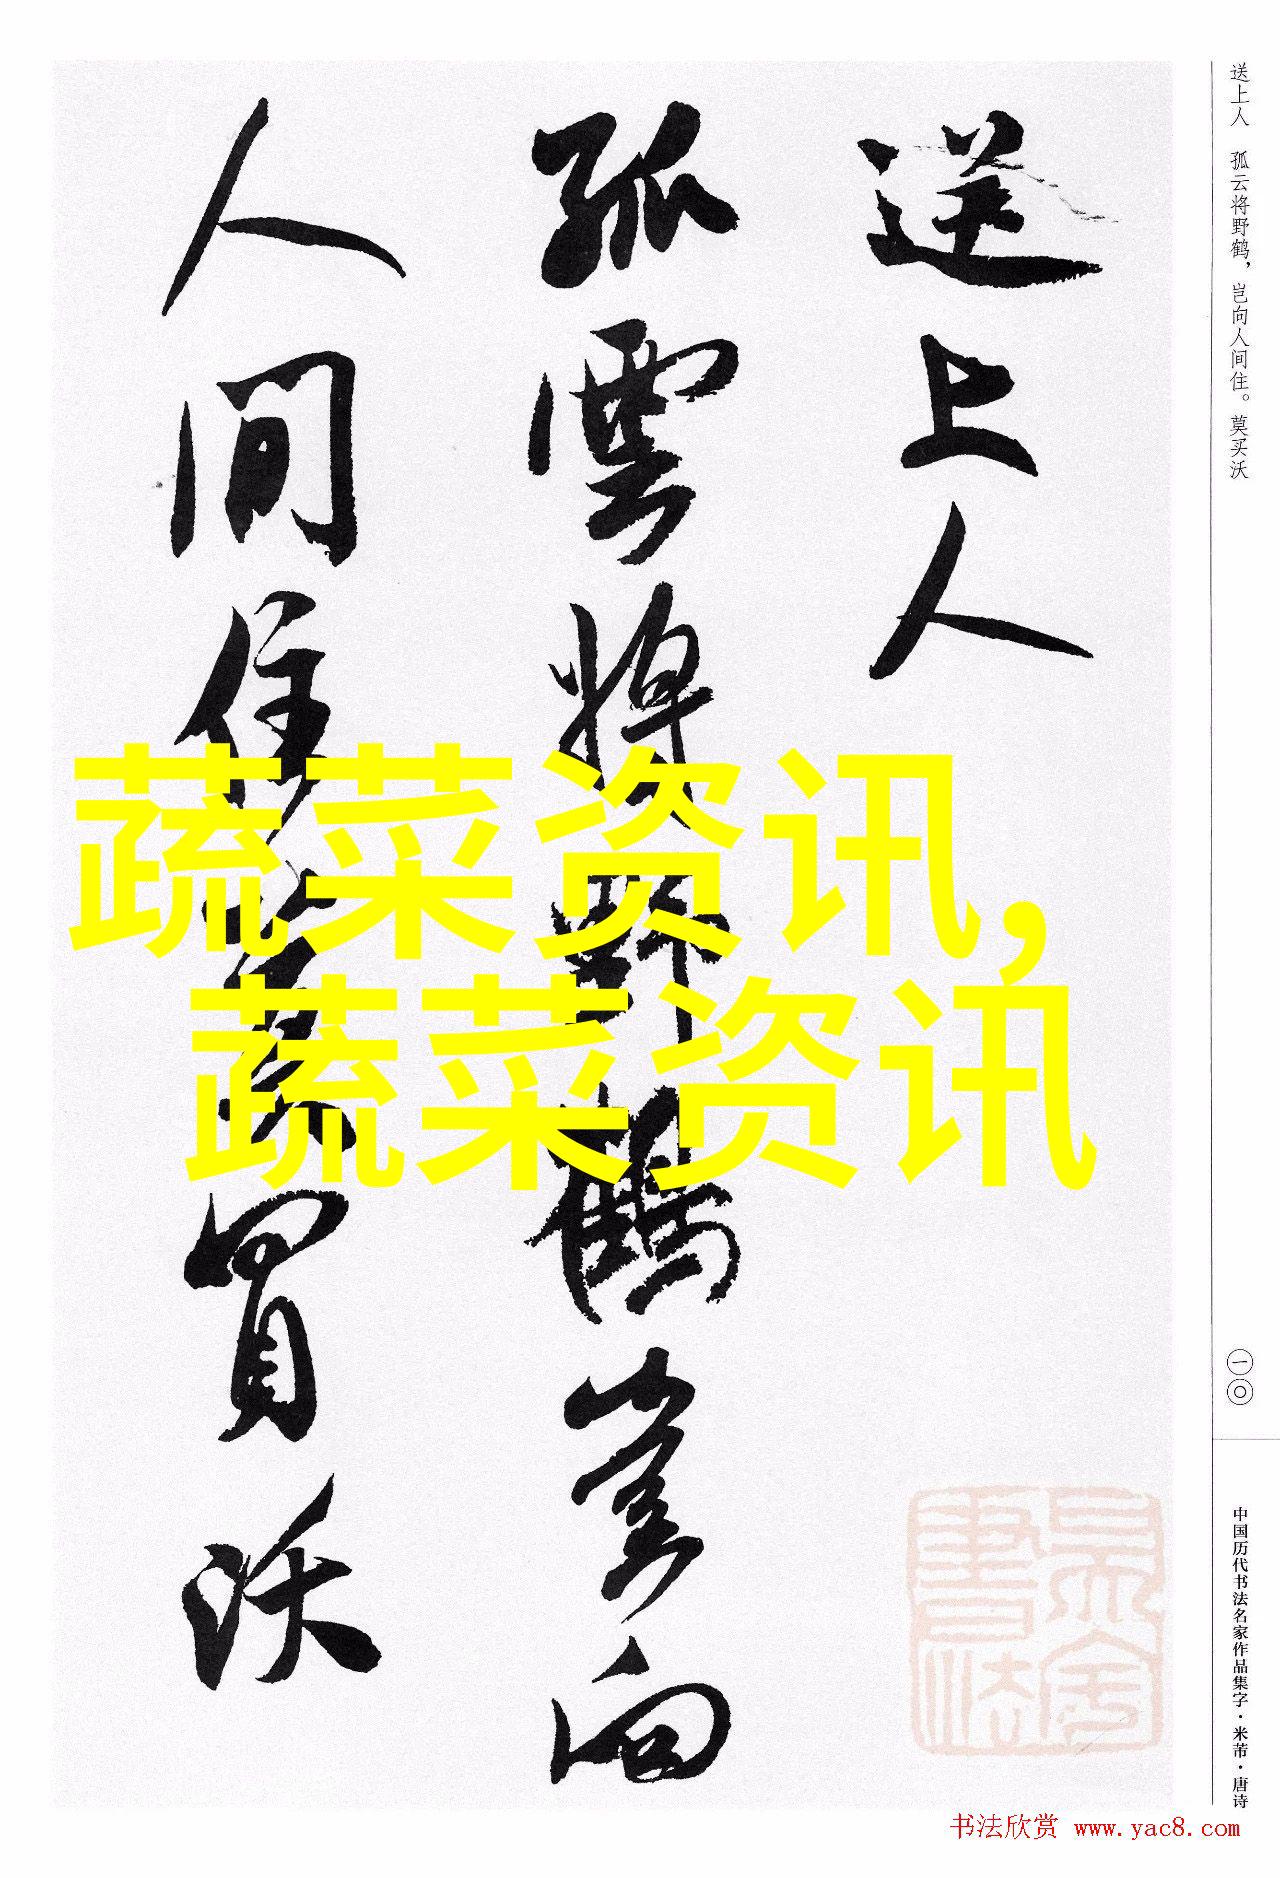 送上人
孤雲將野鶴豈向
人間住莫買沃
蔬菜资讯，
蔬菜资讯
送上人 孤云将野鹤，岂向人间住。莫买沃
一〇
中国历代书法名家作品集字·米芾·唐诗
书法欣赏 www.yac8.com